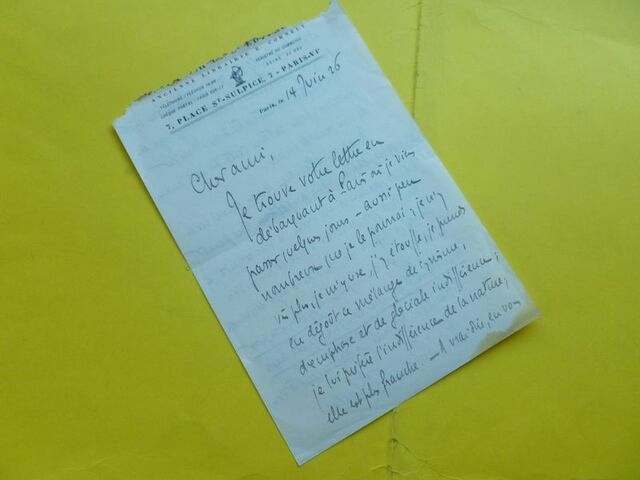 ANCIENNE LIBRAIRIE E. CORNÉLY
REGISTRE DU COMMERCE
SEINE
7, PLACE St-SULPICE, 7 - PARIS-VIe
Paris, le 14 Juin 26
Cher ami,
Je trouve votre lettre en
débarquant à Paris où je viens
passer quelques jours - aussi peu
nombreux que je le pourrai ; je n'y
vis plus, je m'y use, j'y étouffe, je prends
en dégoût ce mélange de cynisme,
d'emphase et de glaciale indifférence ;
je lui préfère l'indifférence de la nature,
elle est plus franche. - A vrai dire, en vous